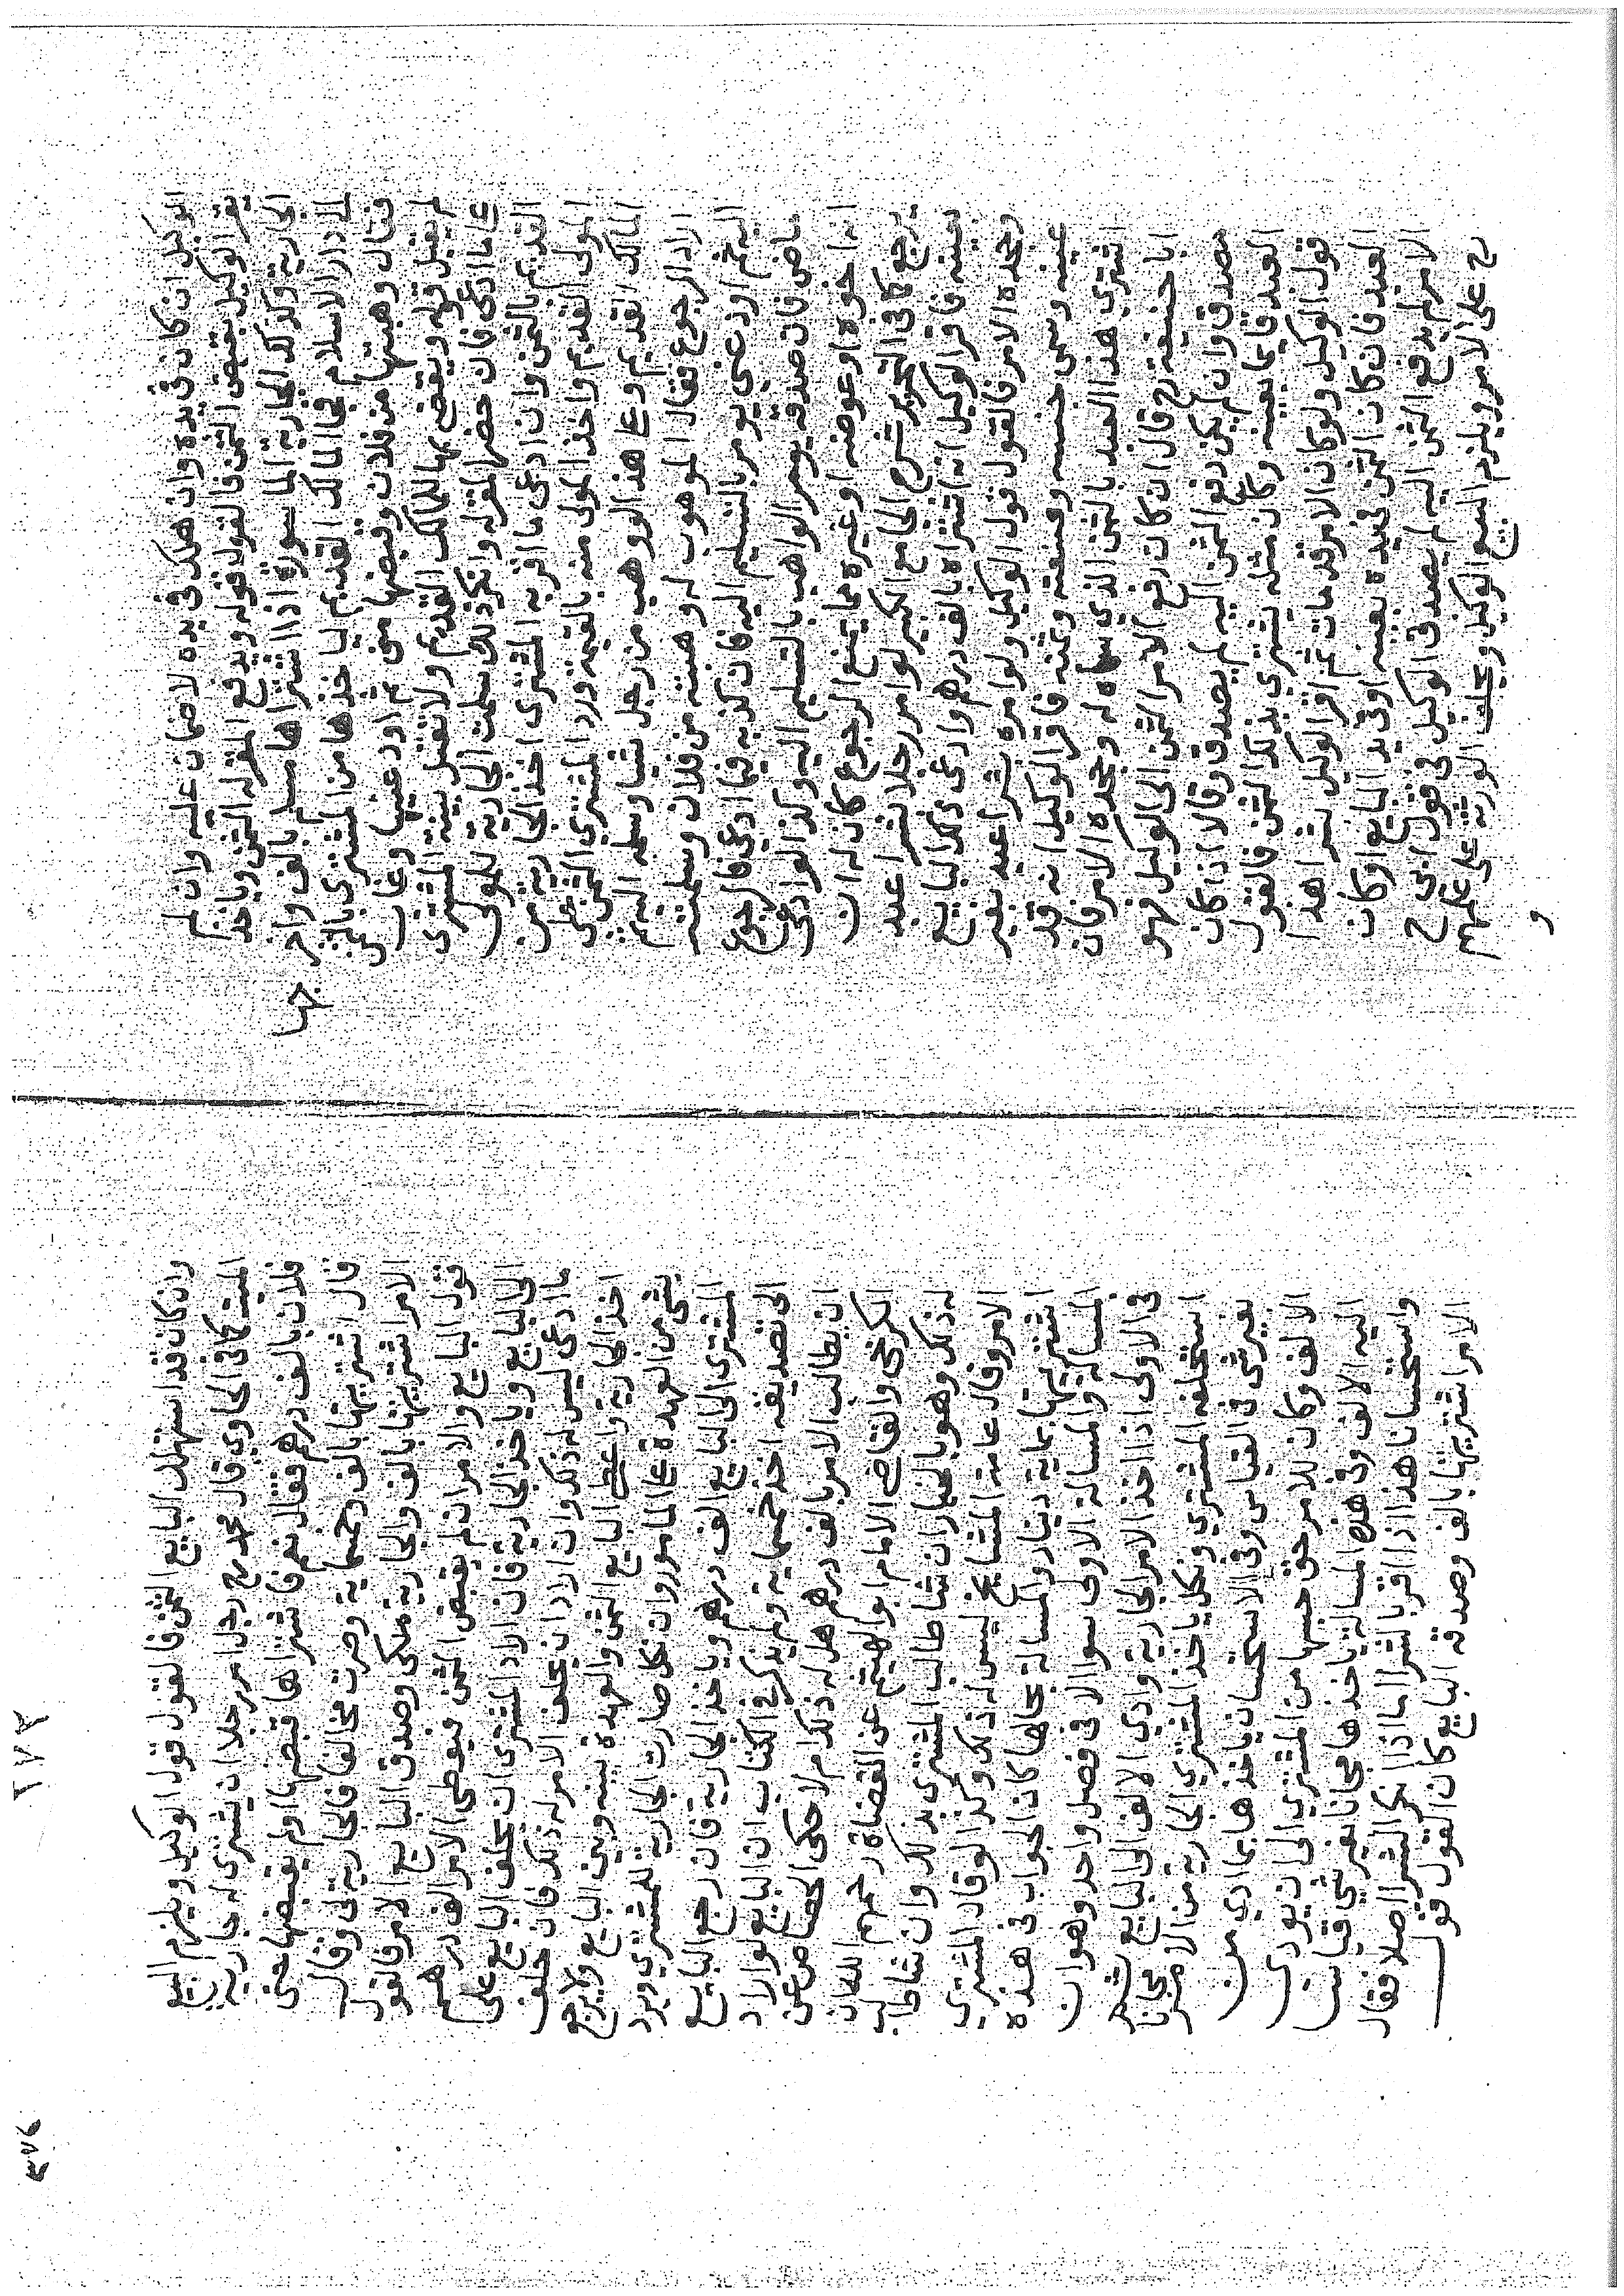 الوكيل ان كان في يده وان هلك في يده لا ضمان عليه وان لم
يقر الوكيل بقبض الثمن فالقول قوله ويدفع المقر له الثمن وياخذ
الجارية وكذلك الجارية الماسورة اذا اشتراها مسلم بالف واخرجها
الى دار الاسلام فجا المالك القديم لياخذها من المشتري بالثمن
فقال وهبتها من فلان وقبضها مني ثم اودعنيها وغاب
لم يقبل قوله ويقضى بها للمالك القديم ولا تقبل بينة المشتري
على ما ادعى فان حضر المقر له وانكر ذلك سلمت الجارية للمولى
القديم بالثمن وان ادعى ما اقر به المشترى اخذ الجارية من
المولى القديم واخذ المولى منه بالقيمة ورد المشتري الثمن على
المالك القديم وعلى هذا لو وهب من رجل شيا وسلمه اليه ثم
اراد الرجوع فقال الموهوب له وهبته من فلان وسلمته
اليه ثم اودعني يومر بالتسليم اليه فان كذبه فيما ادعى فالرجوع
ماض فان صدقه يومر الواهب بالتسليم اليه وكذا لو ادعى
انه اخوه او عوضه او غيره مما يمنع الرجوع كان له ان
يرجع كما في التحرير شرح الجامع الكبير لو امر رجلا بشرا عبد
بعينه فاقر الوكيل انه اشتراه بالف درهم وادعى ذلك البايع
وجحده الامر فالقول قول الوكيل ولو امره بشرا عبد بغير
عينه وسمى جنسه وصفته وثمنه فاقر الوكيل انه قد
اشترى هذا العبد بالثمن الذي سماه له وجحده الامر فان
ابا حنيفة رح قال ان كان دفع الامر الثمن الى الوكيل فهو
مصدق وان لم يكن دفع الثمن اليه لم يصدق وقالا اذا كان
العبد قايما بعينه وكان مثله يشترى بذلك الثمن فالقول
قول الوكيل ولو كان الامر قد مات ثم اقر الوكيل بشرا هذا
العبد فان كان الثمن في يده بعينه او في يد البايع او كان
الامر لم يدفع الثمن اليه لم يصدق الوكيل في قول ابي ح
رح على الامر ويلزم البيع الوكيل ويحلف الورثة على علمهم
و
٢٧٢
وان كان قد استهلك البايع الثمن فالقول قول الوكيل ويلزم البيع
الميت كما في الحاوي قال محمد رح رجل امر رجلا ان يشتري له جارية
فلان بالف درهم فقال نعم فاشتراها قبضها او لم يقبضها حتى
قال اشتريتها بالف وخمسماية وصرت مخالفا فالجارية لي وقال
الامر اشتريتها بالف والجارية ملكي وصدق البايع الامر فالقول
قول البايع والامر ان لم يقبض الثمن فيوطى الامر الف درهم
الى البايع وياخذ الجارية فان اراد المشترى ان يحلف البايع على
ما ادعى ليس له ذلك وان اراد ان يحلف الامر له ذلك فان حلف
اخذ الجارية واعطى البايع الثمن والعهدة بينه وبين البايع ولا يرجع
بشى من العهدة على المامور وان نكل صارت الجارية للمشتري ويرد
المشترى الى البايع الف درهم وياخذ الجارية فان رجع البايع
الى تصديقه اخذ خمسماية ولم يذكر في الكتاب ان البايع لو اراد
ان يطالب الامر بالف درهم هل له ذلك ام لا حكى الجصاص عن
الكرخي والقاضي الامام ابو الهيثم عن القضاة رحمهم الله ان
له ذلك وهو بالخيار ان شا طالب المشترى بذلك وان شا طالب
الامر وقال عامة المشايخ ليس له ذلك وكذا لو قال المشترى
اشتريتها بماية دينار والمسالة بحالها كان الجواب في هذه
المسالة والمسالة الاولى سوا الا في فصل واحد وهو ان
في الاولى اذا اخذ الامر الجارية وادى الالف الى البايع ثم
استحلفه المشتري ونكل ياخذ المشتري الجارية من الامر مجانا
بغير شى في القياس وفي الاستحسان ياخذها بما ادى من
الالف وكان للامر حق حبسها من المشتري الى ان يودى
اليه الالف وفي هذه المسالة ياخذها مجانا بغير شي قياسا
واستحسانا هذا اذا اقر بالشرا اما اذا انكر الشرا اصلا فقال
الامر اشتريتها بالف وصدقه البايع كان القول قول
٣٧٤